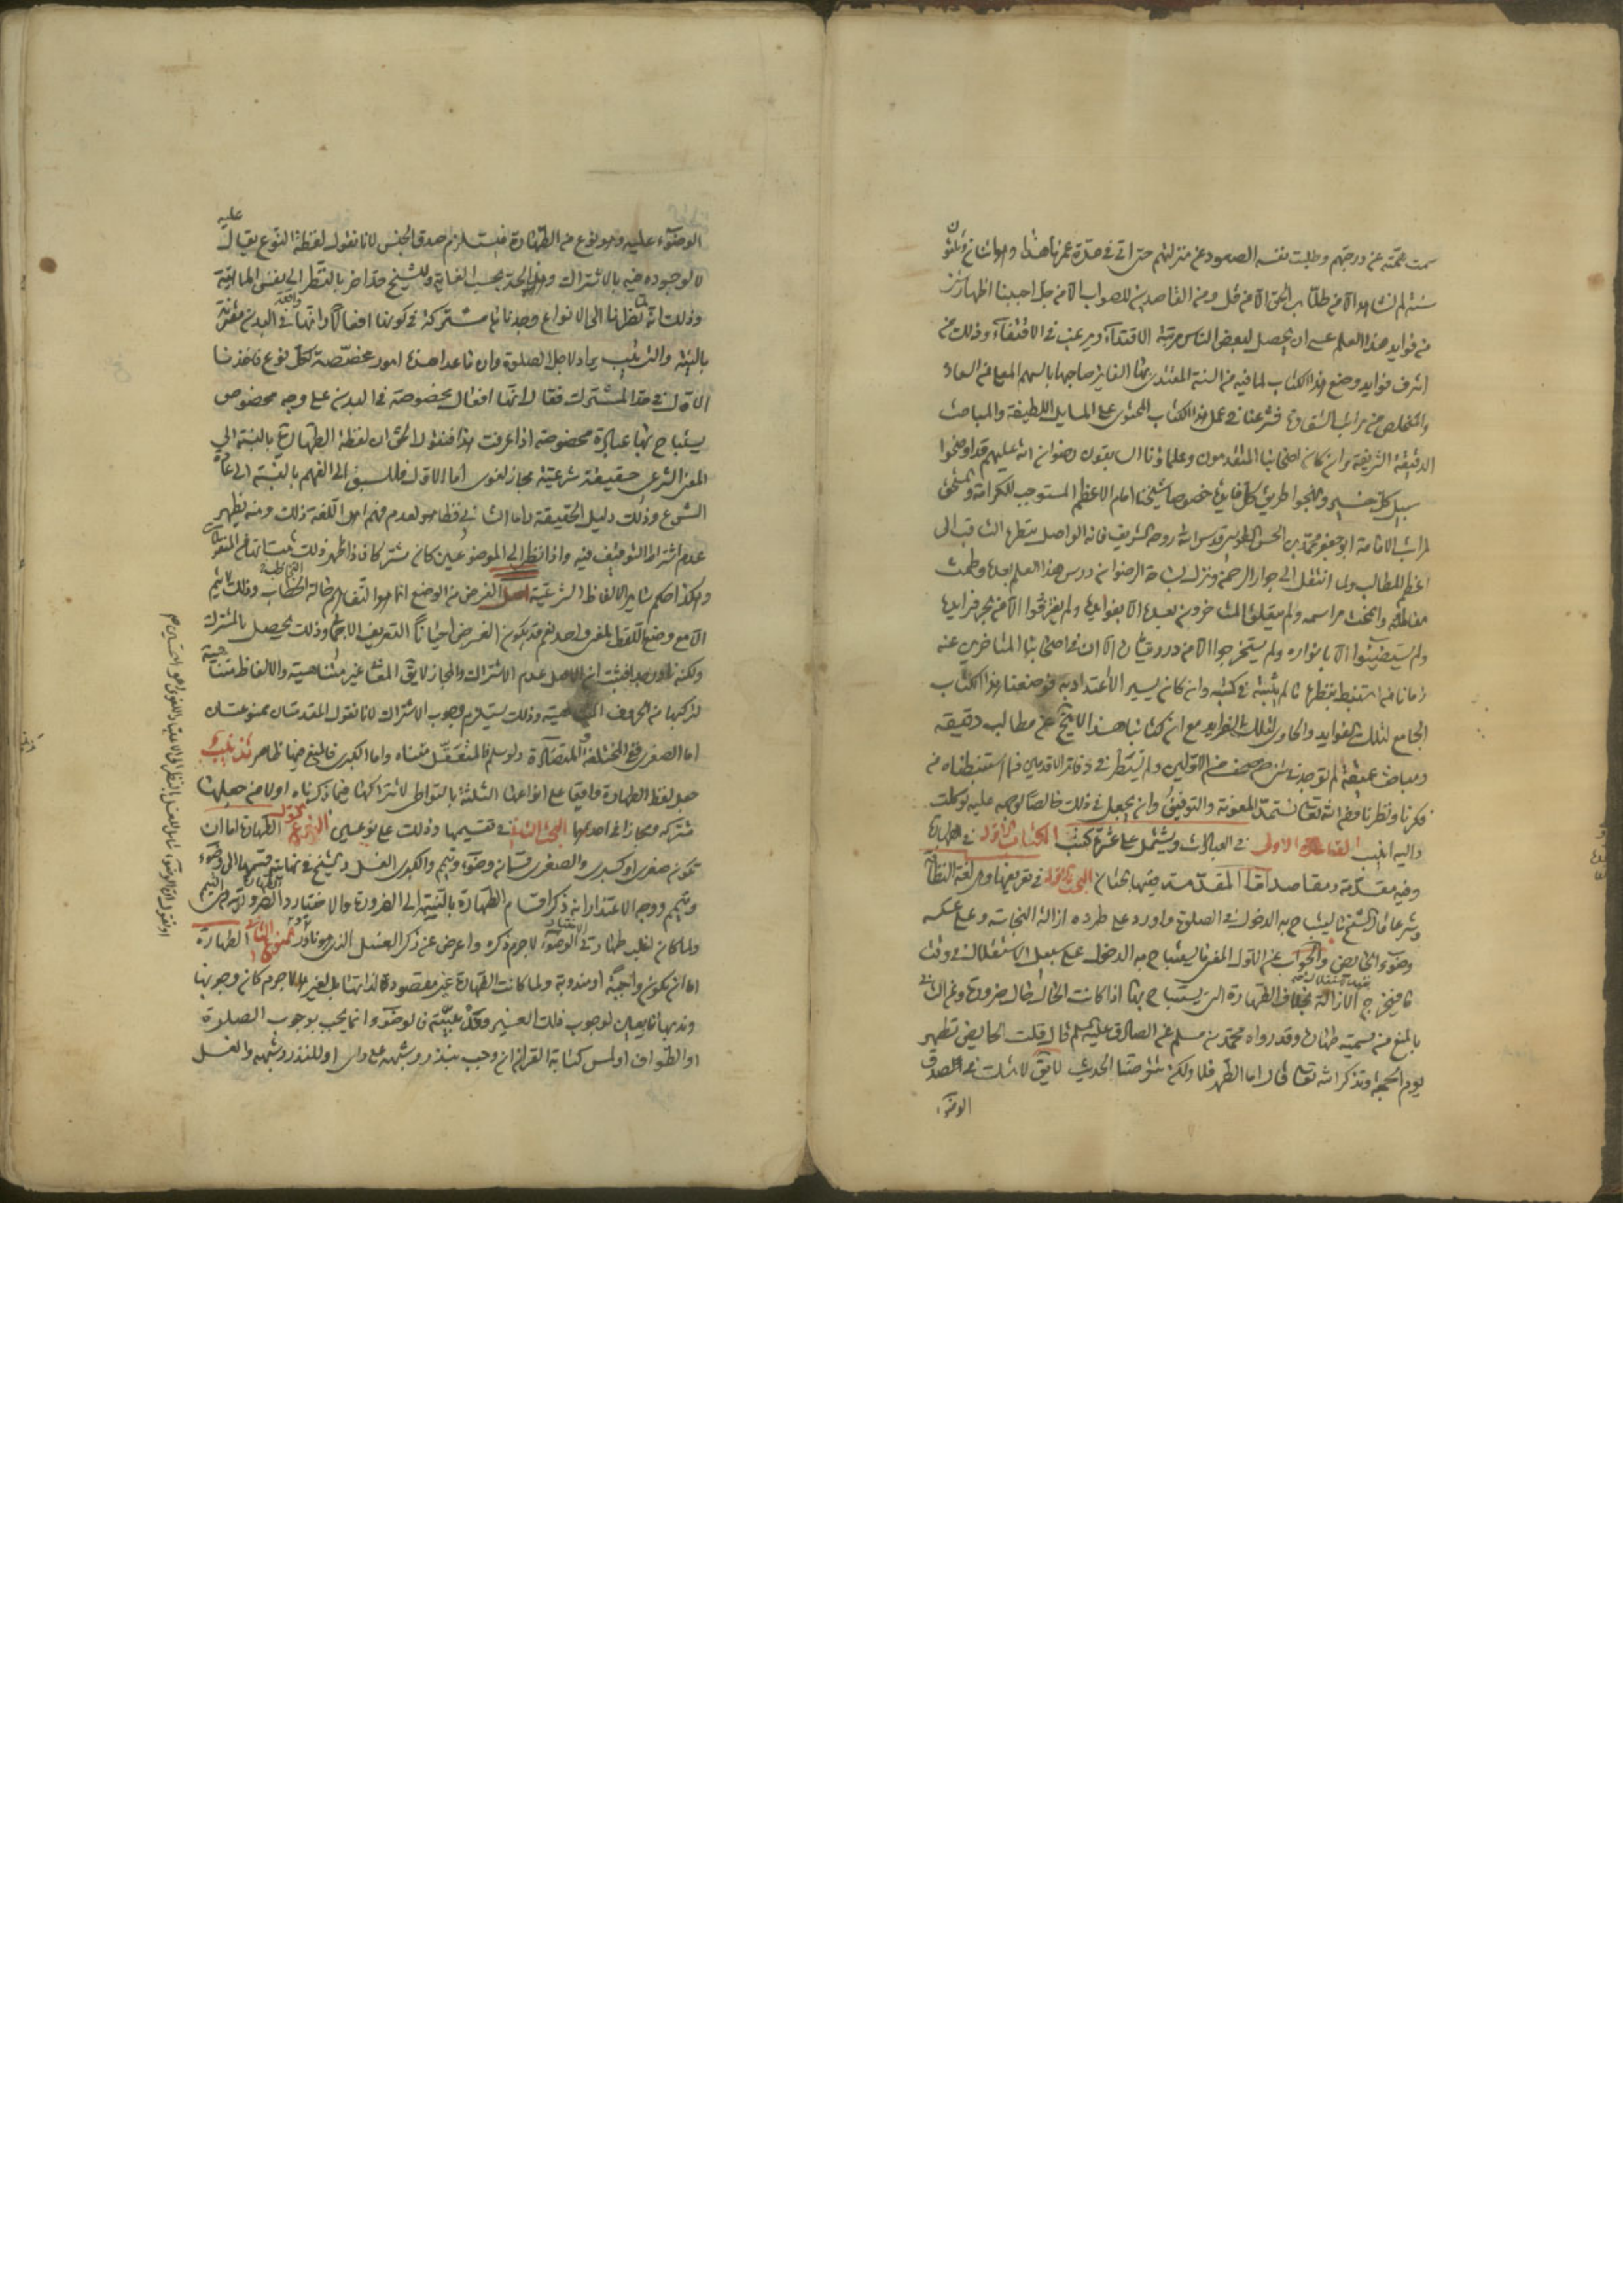 سمت همته عن درجتهم وطلبت نفسه الصعود عن منزلتهم حتى اني في مدة عمرنا هذا وهو اثنان وثلثون
سنة لم نشاهد الا من طلاب الحق الا من قل ومن القاصدين للصواب الا من جل احببنا اظهار شيء
من فوايد هذا العلم عسى ان يحصل لبعض الناس مرتبة الاقتداء ويرغب في الاقتفاء وذلك من
اشرف فوايد وضع هذا الكتاب لما فيه من السنة المقتدى بها الفايز صاحبها بالسهم المعلى من السعادة
والتخلص من مراتب الشقاوة فشرعنا في عمل هذا الكتاب المحتوى على المسايل اللطيفة والمباحث
الدقيقة الشريفة وان كان اصحابنا المتقدمون وعلماؤنا السابقون رضوان الله عليهم قد اوضحوا
سبيل كل خير ونهجوا طريق كل فايدة خصوصا شيخنا الامام الاعظم المستوجب للكرامة والمستحق
لمراتب الامامة ابو جعفر محمد بن الحسن الطوسي قدس الله روحه الشريف فانه الواصل بنظره الثاقب الى
اعظم المطالب ولما انتقل الى جوار الرحمن ونزل بساحة الرضوان درس هذا العلم بعده وطمت
معالمه وانمحت مراسمه ولم يتعلق المتاخرون بعده الا بفوايده ولم يغترفوا الا من بحر فرايده
ولم يستضيئوا الا بانواره ولم يستخرجوا الا من درره
زمانا منه استنبط بنظره ما لم يثبته في كتبه وان كان يسير الاعتداد به فوضعنا هذا الكتاب
الجامع لتلك الفوايد والحاوي لتلك الفرايد مع ان كتابنا هذا لا يخ عن مطالب دقيقة
ومباحث عميقة لم توجد في شيء من صحف الاولين ولم تستطر في دفاتر الاقدمين مما استنبطناه من
فكرنا ونظرنا ومن الله تعالى نستمد المعونة والتوفيق وان يجعل في ذلك خالصا لوجهه عليه توكلت
واليه انيب القاعدة الاولى في العبادات ويشتمل على عشرة كتب الكتاب الاول في الطهارة
وفيه مقدمة ومقاصد اما المقدمة ففيها بحثان البحث الاول في تعريفها وهي لغة النظافة
وشرعا قال الشيخ ما يستباح به الدخول في الصلوة واورد على طرده ازالة النجاسة وعلى عكسه
وضوء الحايض والجواب عن الاول المعنى ما يستباح به الدخول على سبيل الاستقلال في وقت
ما فيخرج الازالة بخلاف الطهارة التي يستباح بها اذا كانت الحال حال ضرورة وعن الثاني
بالمنع من تسميته طهارة وقد رواه محمد بن مسلم عن الصادق عليه السلم قال قلت الحايض تطهر
يوم الجمعة وتذكر الله تعالى قال اما الطهر فلا ولكن تتوضا الحديث لا يق لا نسلم عدم الصدق
الوضوء
الوضوء عليه وهو نوع من الطهارة فيستلزم صدق الجنس عليه لانا نقول لفظة النوع يقال
لا لوجوده فيه بالاشتراك وهذا الحد بحسب الغاية وللشيخ حد اخر بالنظر الى نفس الماهية
وذلك انه نظرنا الى الانواع وجدناها مشتركة في كونها افعالا وانها واقعة في البدن مقترنة
بالنية والترتيب يراد لاجل الصلوة وان ما عدا هذه امور مخصصة لكل نوع فاخذنا
الاول في حد المشترك فقال انها افعال مخصوصة في البدن على وجه مخصوص
يستباح بها عبادة مخصوصة اذا عرفت هذا فنقول الحق ان لفظة الطهارة بالنسبة الى
المعنى الشرعي حقيقة شرعية مجاز لغوي اما الاول فللسبق الى الفهم بالنسبة الى عادة
الشرع وذلك دليل الحقيقة واما الثاني فظاهر لعدم فهم اهل اللغة ذلك ومنه يظهر
عدم اشتراط التوقيف فيه واذا نظر الى الموضوعين كان مشتركا فاذا ظهر ذلك
وهكذا حكم ساير الالفاظ الشرعية اصل الغرض من الوضع انما هو التفاهم حالة التخاطب وذلك لا يتم
الا مع وضع اللفظ لمعنى واحد نعم قد يكون الغرض احيانا التعريف الاجمالي وذلك يحصل بالمشترك
ولكنه نادر جدا فثبت ان الاصل عدم الاشتراك والمجاز لا يق المعاني غير متناهية والالفاظ متناهية
لتركبها من الحروف المتناهية وذلك يستلزم وجوب الاشتراك لانا نقول المقدمتان ممنوعتان
اما الصغرى ففي المختلفة والمتضادة ولو سلم فالمتعقل متناه واما الكبرى فالمنع فيها ظاهر تذنيب
جعل لفظ الطهارة واقعا على انواعها الثلثة بالتواطي لاشتراكها فيما ذكرناه اولا من جعلها
مشتركة ومجازا في احدها البحث الثاني في تقسيمها وذلك على نوعين النوع الاول الطهارة اما ان
تكون صغرى او كبرى والصغرى قسمان وضوء وتيمم والكبرى الغسل والشيخ في نهايته قسمها الى وضوء
وتيمم ووجه الاعتذار انه ذكر اقسام الطهارة بالنسبة الى الضرورة والاختيار
ولما كان اغلب طهارتي الوضوء لا جرم ذكره واعرض عن ذكر الغسل الذي هو نادر النوع الثاني الطهارة
اما ان تكون واجبة او مندوبة ولما كانت الطهارة غير مقصودة لذاتها بل لغيرها لا جرم كان وجوبها
وندبها تابعين لوجوب ذلك الغير وندبيته فالوضوء انما يجب بوجوب الصلوة
او الطواف او لمس كتابة القران ان وجب بنذر وشبهه على راي او للنذر وشبهه والغسل